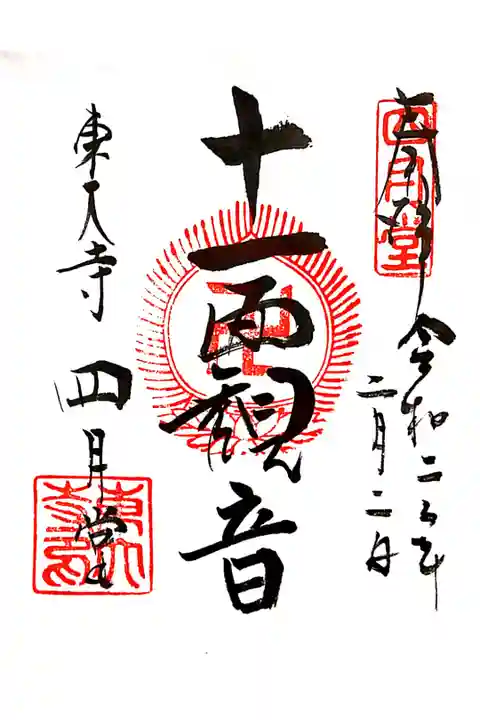 奉拝
四月堂
令和二年
二月二日
十一面観音
東大寺
四月堂
東大寺印